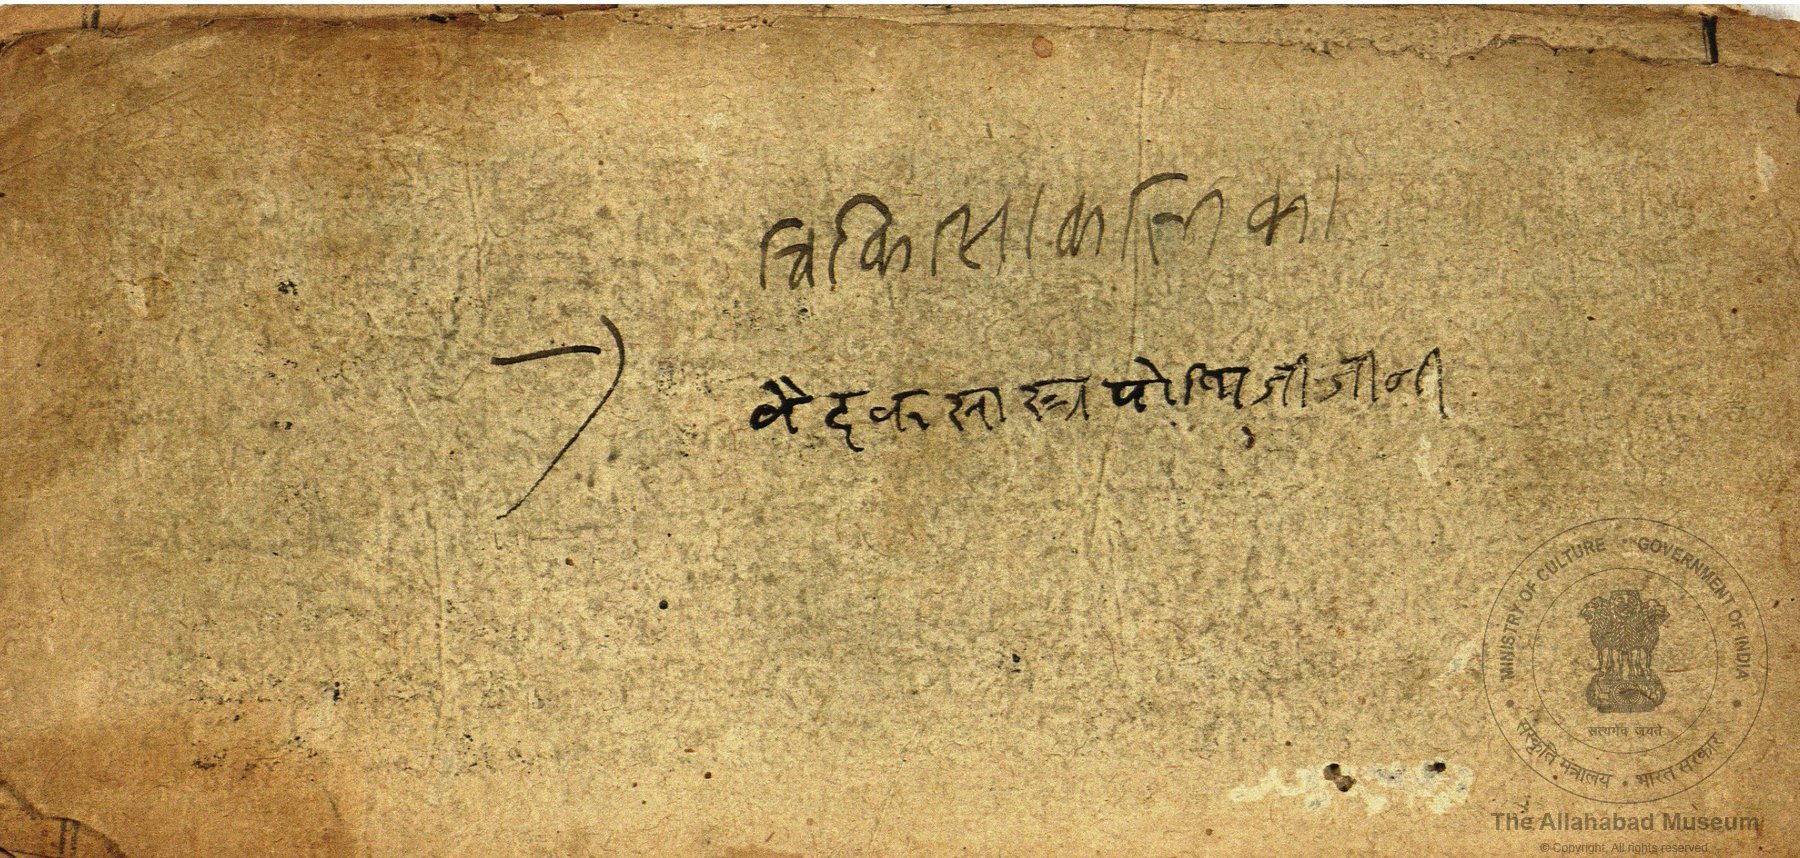 चिकित्साकलिका
वैद्कसास्त्रपोथिजीजीनी
MINISTRY OF CULTURE GOVERNMENT OF INDIA
सत्यमेव जयते
संस्कृति मंत्रालय • भारत सरकार
The Allahabad Museum
© Copyright, All rights reserved